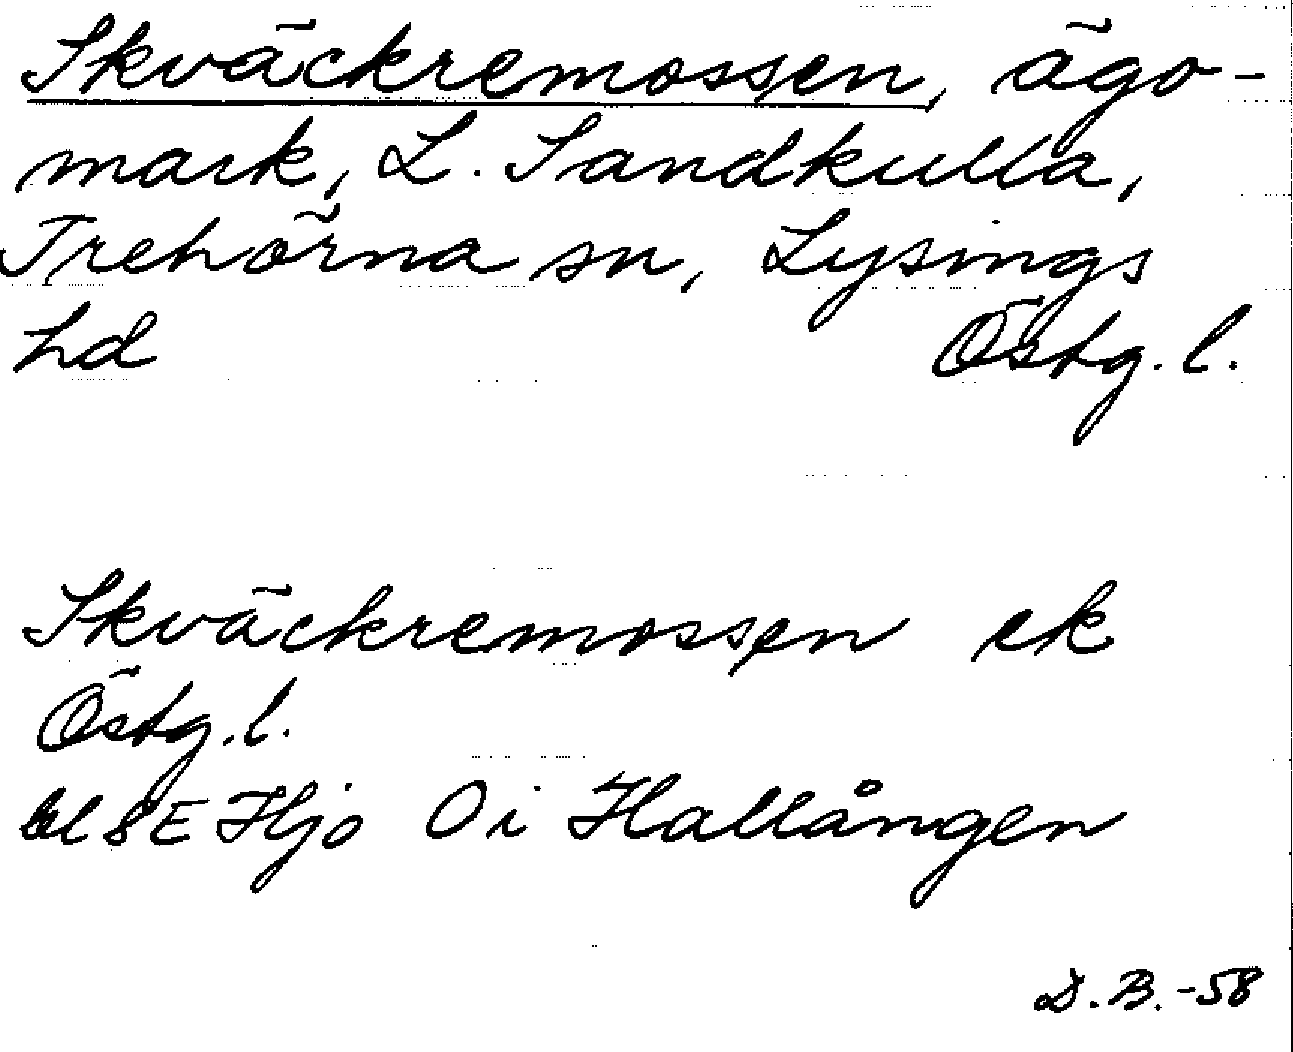 Skväckremossen, ägo-
mark, L. Sandkulla,
Trehörna sn, Lysings
hd Östg. l.
Skväckremossen ek
Östg. l.
bl 8E Hjo 0 i Hallången
D.B. -58